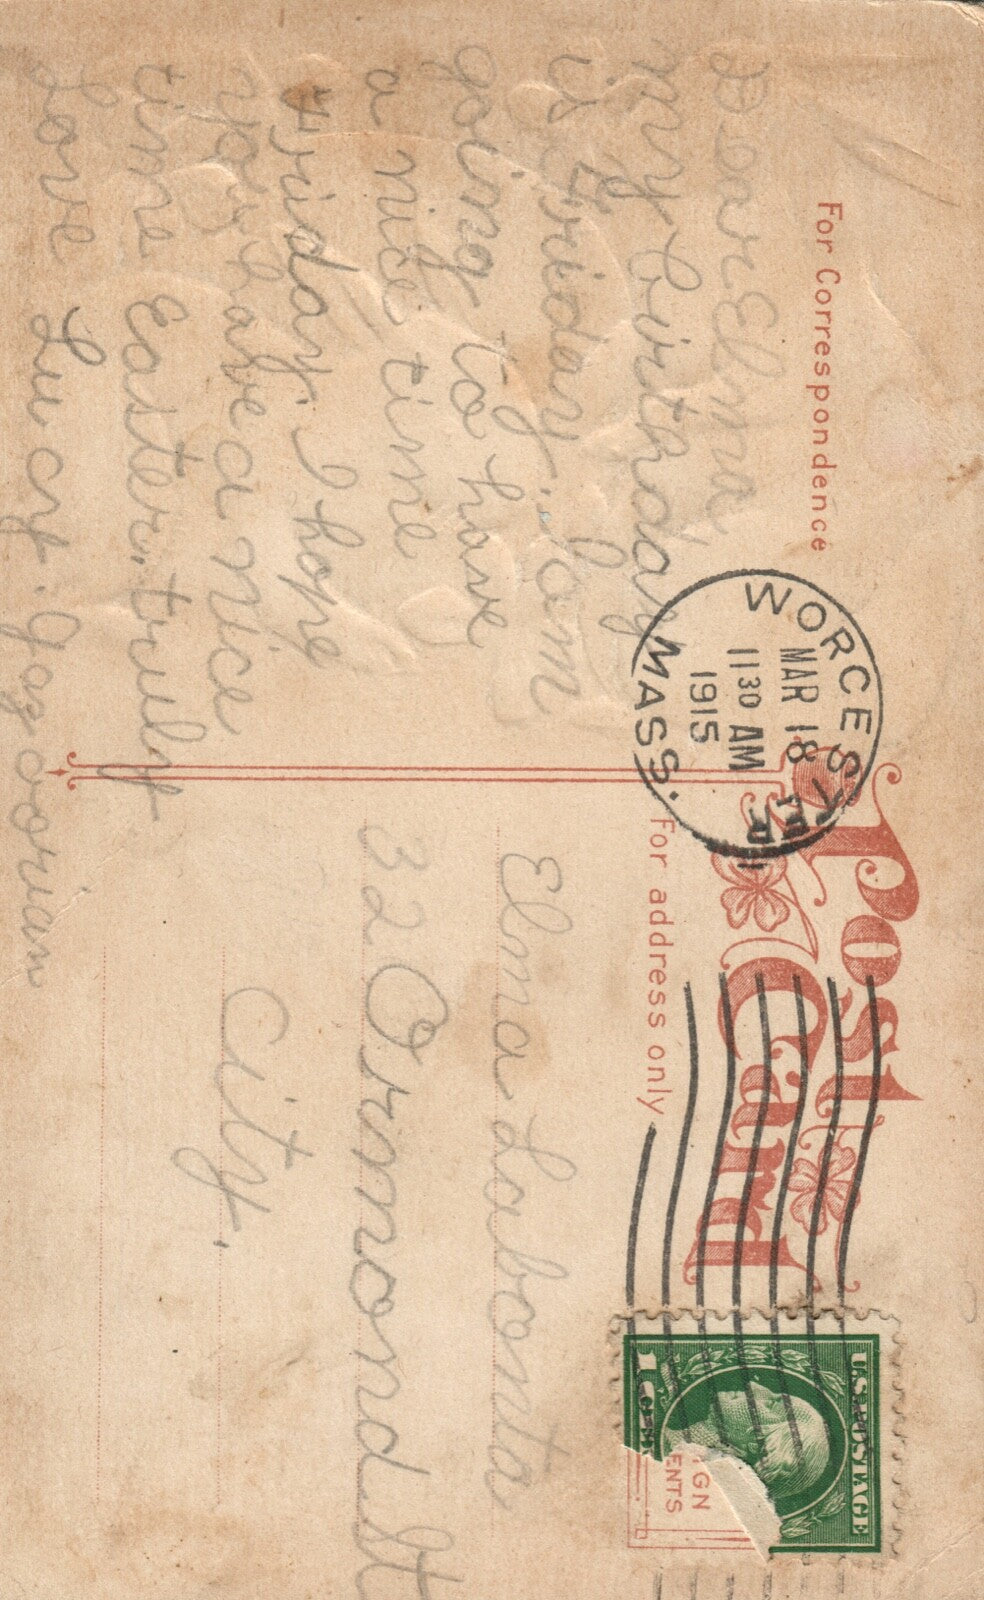 Post Card
For Correspondence
For address only
WORCESTER
MAR 18
11 30 AM
1915
MASS.
U.S. POSTAGE
1
IGN
ENTS
Dear Elma,
my birthday
is Friday. I am
going to have
a nice time
Friday. I hope
you have a nice
time Easter. truly
Love Lucy.
Elma Labonta
32 Ormond St
City.